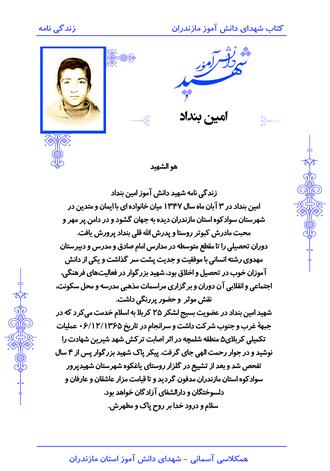 کتاب شهدای دانش آموز مازندران
زندگی نامه
شهید
دانش آموز
امین بنداد
هو الشهید
زندگی نامه شهید دانش آموز امین بنداد
امین بنداد در ۳ آبان ماه سال ۱۳۴۷ میان خانواده ای با ایمان و متدین در
شهرستان سوادکوه استان مازندران دیده به جهان گشود و در دامن پر مهر و
محبت مادرش کبوتر روستا و پدرش الله قلی بنداد پرورش یافت.
دوران تحصیلی را تا مقطع متوسطه در مدارس امام صادق و مدرس و دبیرستان
مهدوی رشته انسانی با موفقیت و جدیت پشت سر گذاشت و یکی از دانش
آموزان خوب در تحصیل و اخلاق بود. شهید بزرگوار در فعالیت‌های فرهنگی،
اجتماعی و انقلابی آن دوران و برگزاری مراسمات مذهبی مدرسه و محل سکونت،
نقش موثر و حضور پررنگی داشت.
شهید امین بنداد در عضویت بسیج لشکر ۲۵ کربلا به اسلام خدمت می‌کرد که در
جبهۀ غرب و جنوب شرکت داشت و سرانجام در تاریخ ۰۶/۱۲/۱۳۶۵ عملیات
تکمیلی کربلای۵ منطقه شلمچه در اثر اصابت ترکش شهد شیرین شهادت را
نوشید و در جوار رحمت الهی جای گرفت. پیکر پاک شهید بزرگوار پس از ۴ سال
تفحص شد و بعد از تشییع در گلزار روستای باغکوه شهرستان شهیدپرور
سوادکوه استان مازندران مدفون گردید و تا قیامت مزار عاشقان و عارفان و
دلسوختگان و دارالشفای آزادگان خواهد بود.
سلام و درود خدا بر روح پاک و مطهرش.
همکلاسی آسمانی - شهدای دانش آموز استان مازندران